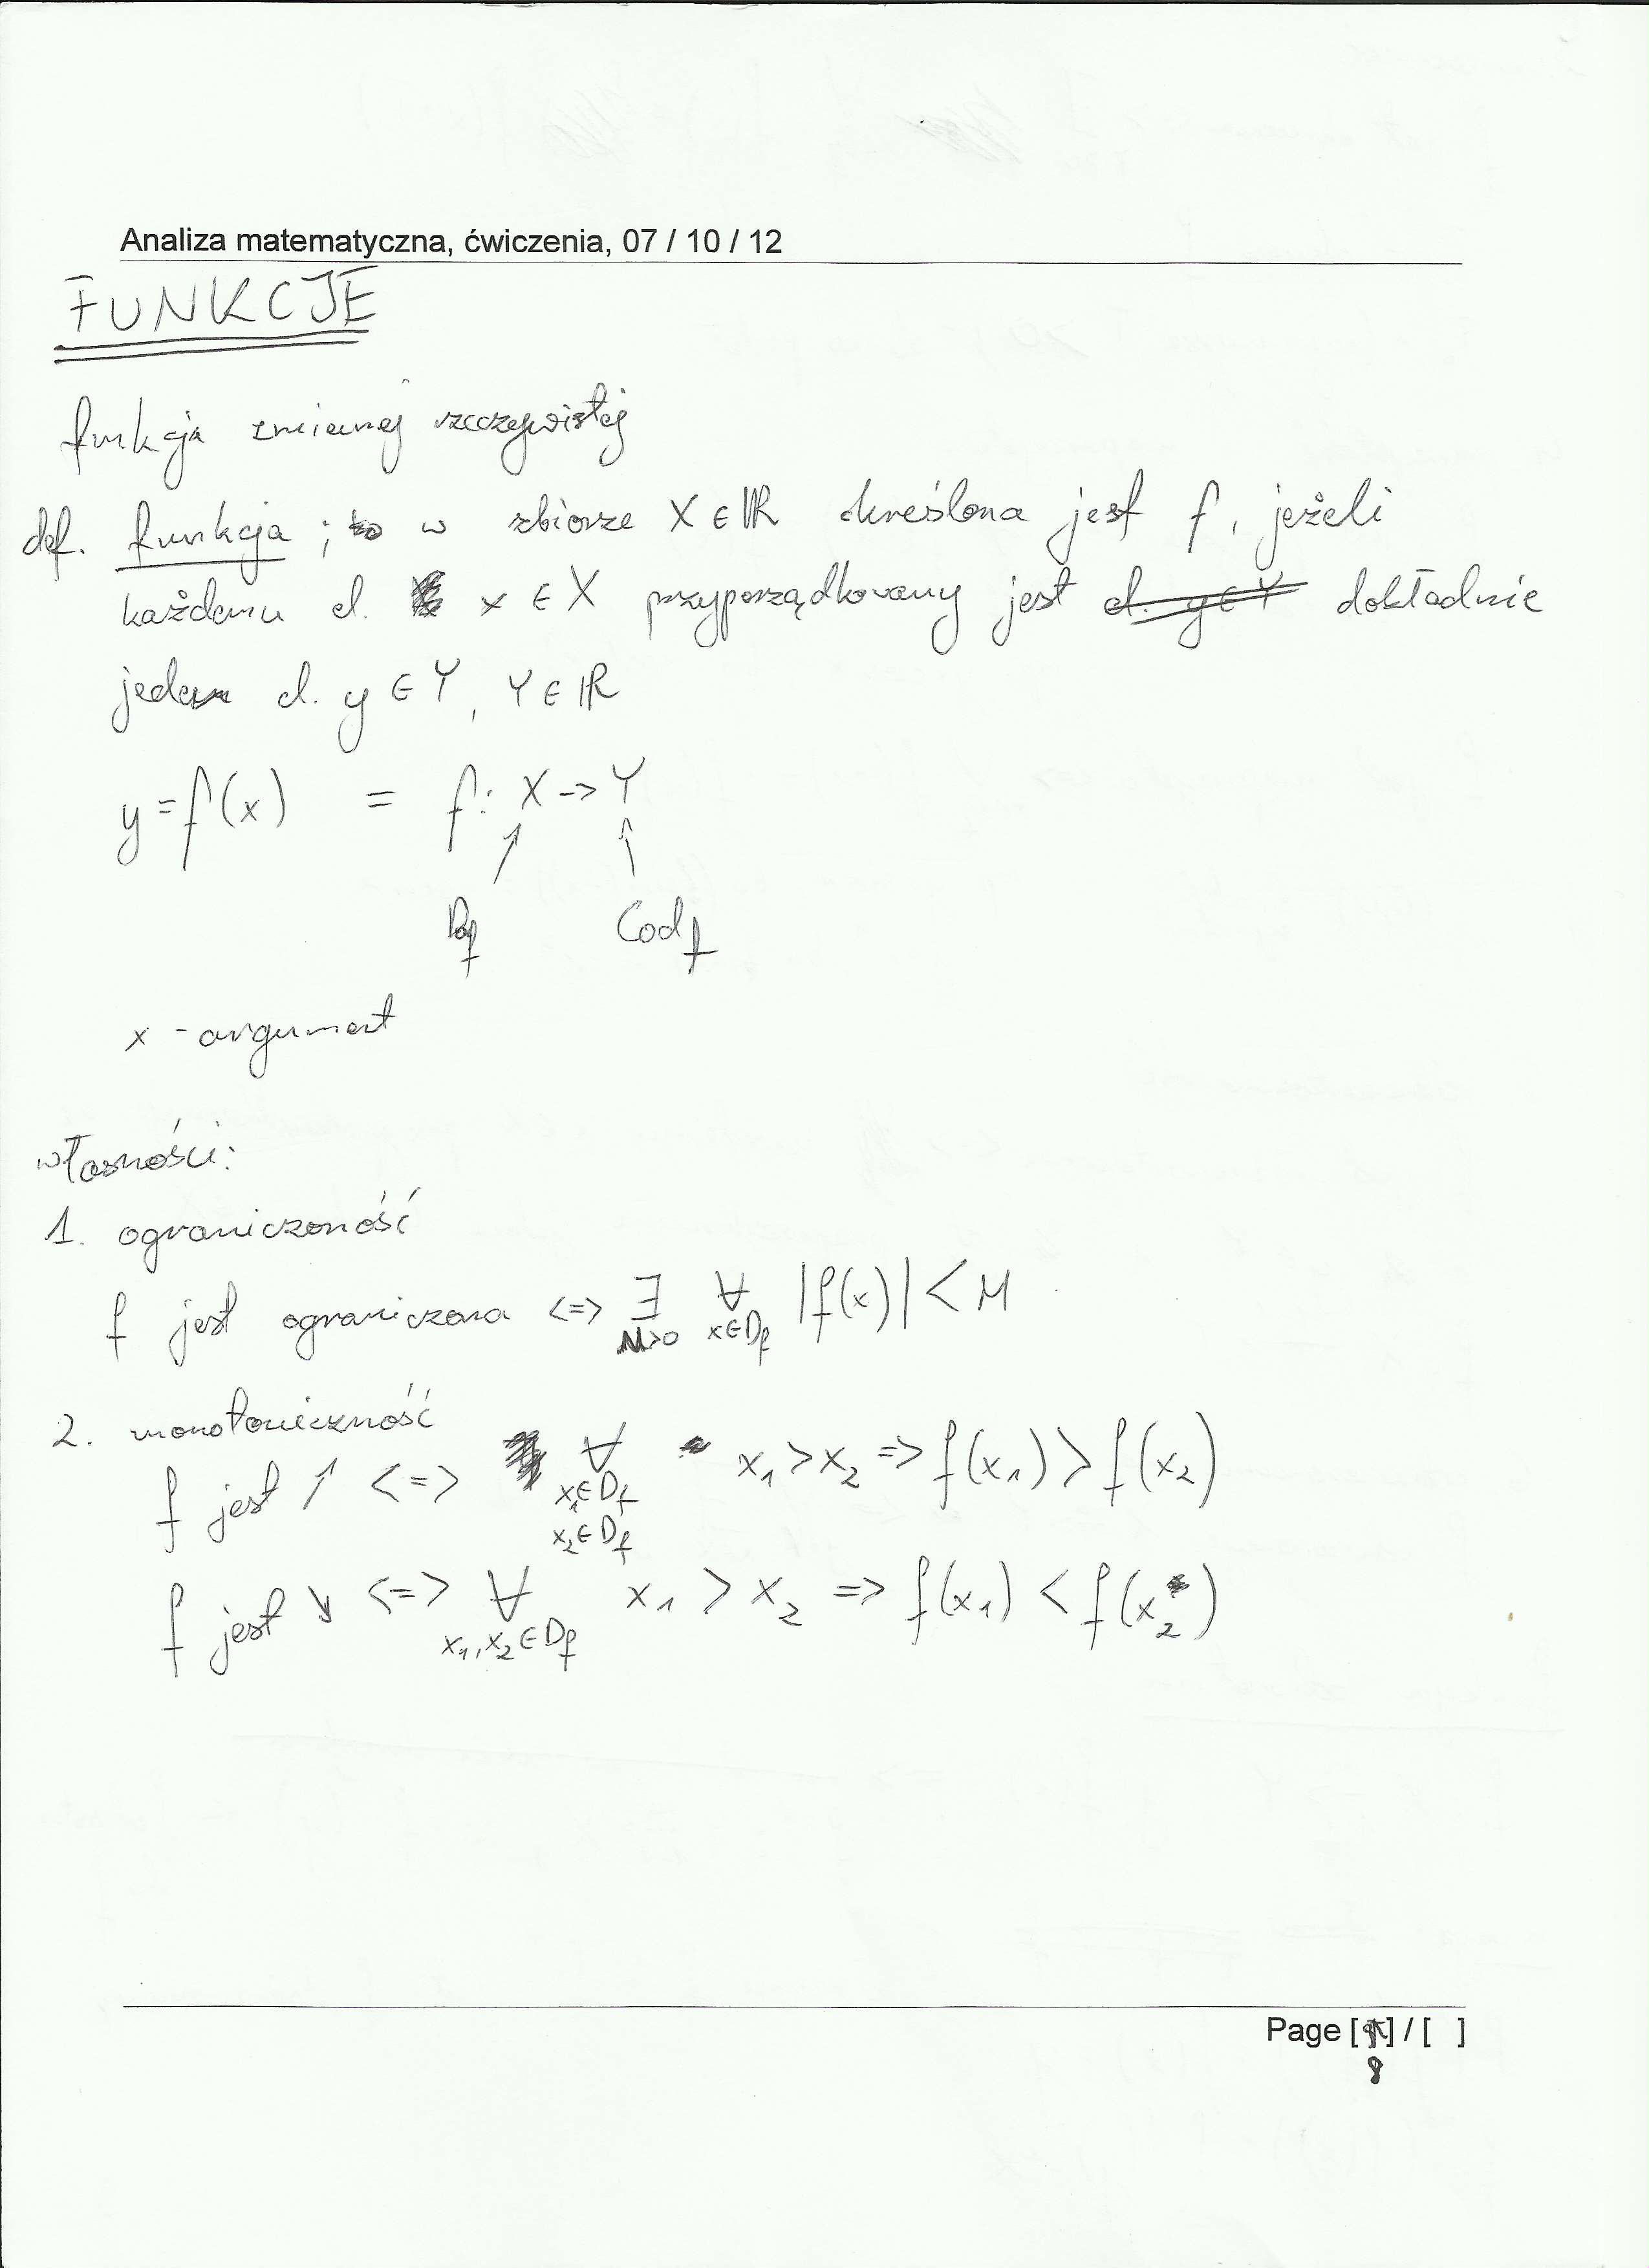 Analiza matematyczna, ćwiczenia, 07 / 10 / 12
FUNKCJE
funkcja zmiennej rzeczywistej
def. funkcja ; to w zbiorze X ∈ ℝ określona jest f, jeżeli
każdemu el. x ∈ X przyporządkowany jest el. y ∈ Y dokładnie
jeden el. y ∈ Y, Y ∈ ℝ
y = f(x) = f: X -> Y
Df Codf
x - argument
własności:
1. ograniczoność
f jest ograniczona <=> ∃ ∀ |f(x)| < M
M>0 x∈Df
2. monotoniczność
f jest ↗ <=> ∀ x₁ > x₂ => f(x₁) > f(x₂)
x₁∈Df
x₂∈Df
f jest ↘ <=> ∀ x₁ > x₂ => f(x₁) < f(x₂)
x₁, x₂ ∈ Df
Page [ ] / [ ]
8